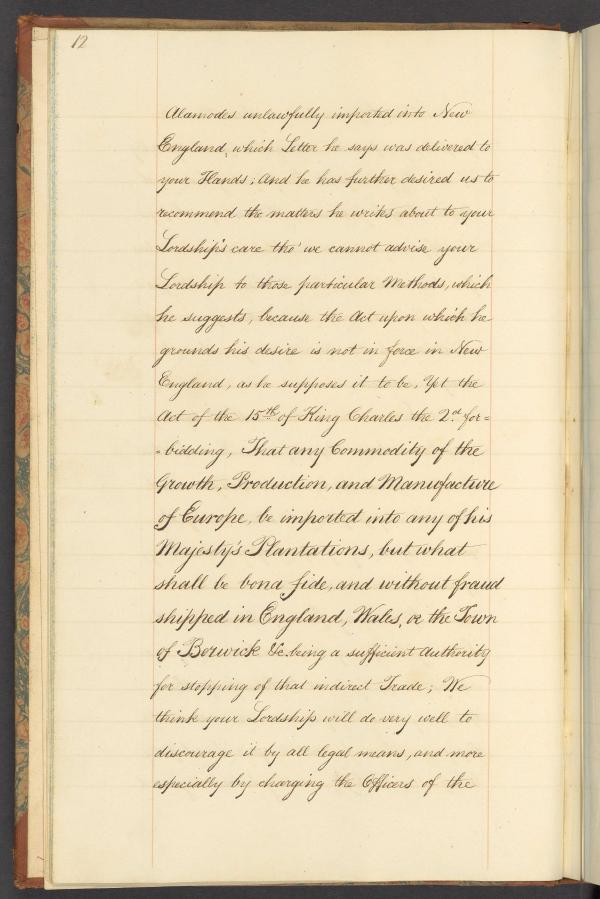 12
Alamodes unlawfully imported into New
England, which Letter he says was delivered to
your Hands; And he has further desired us to
recommend the matters he writes about to your
Lordship's care tho' we cannot advise your
Lordship to those particular Methods, which
he suggests, because the Act upon which he
grounds his desire is not in force in New
England, as he supposes it to be, Yet the
Act of the 15th of King Charles the 2.d for=
=bidding, That any Commodity of the
Growth, Production, and Manufacture
of Europe, be imported into any of his
Majesty's Plantations, but what
shall be bona fide, and without fraud
shipped in England, Wales, or the Town
of Berwick &c. being a sufficient Authority
for stopping of that indirect Trade; We
think your Lordship will do very well to
discourage it by all legal means, and more
especially by charging the Officers of the